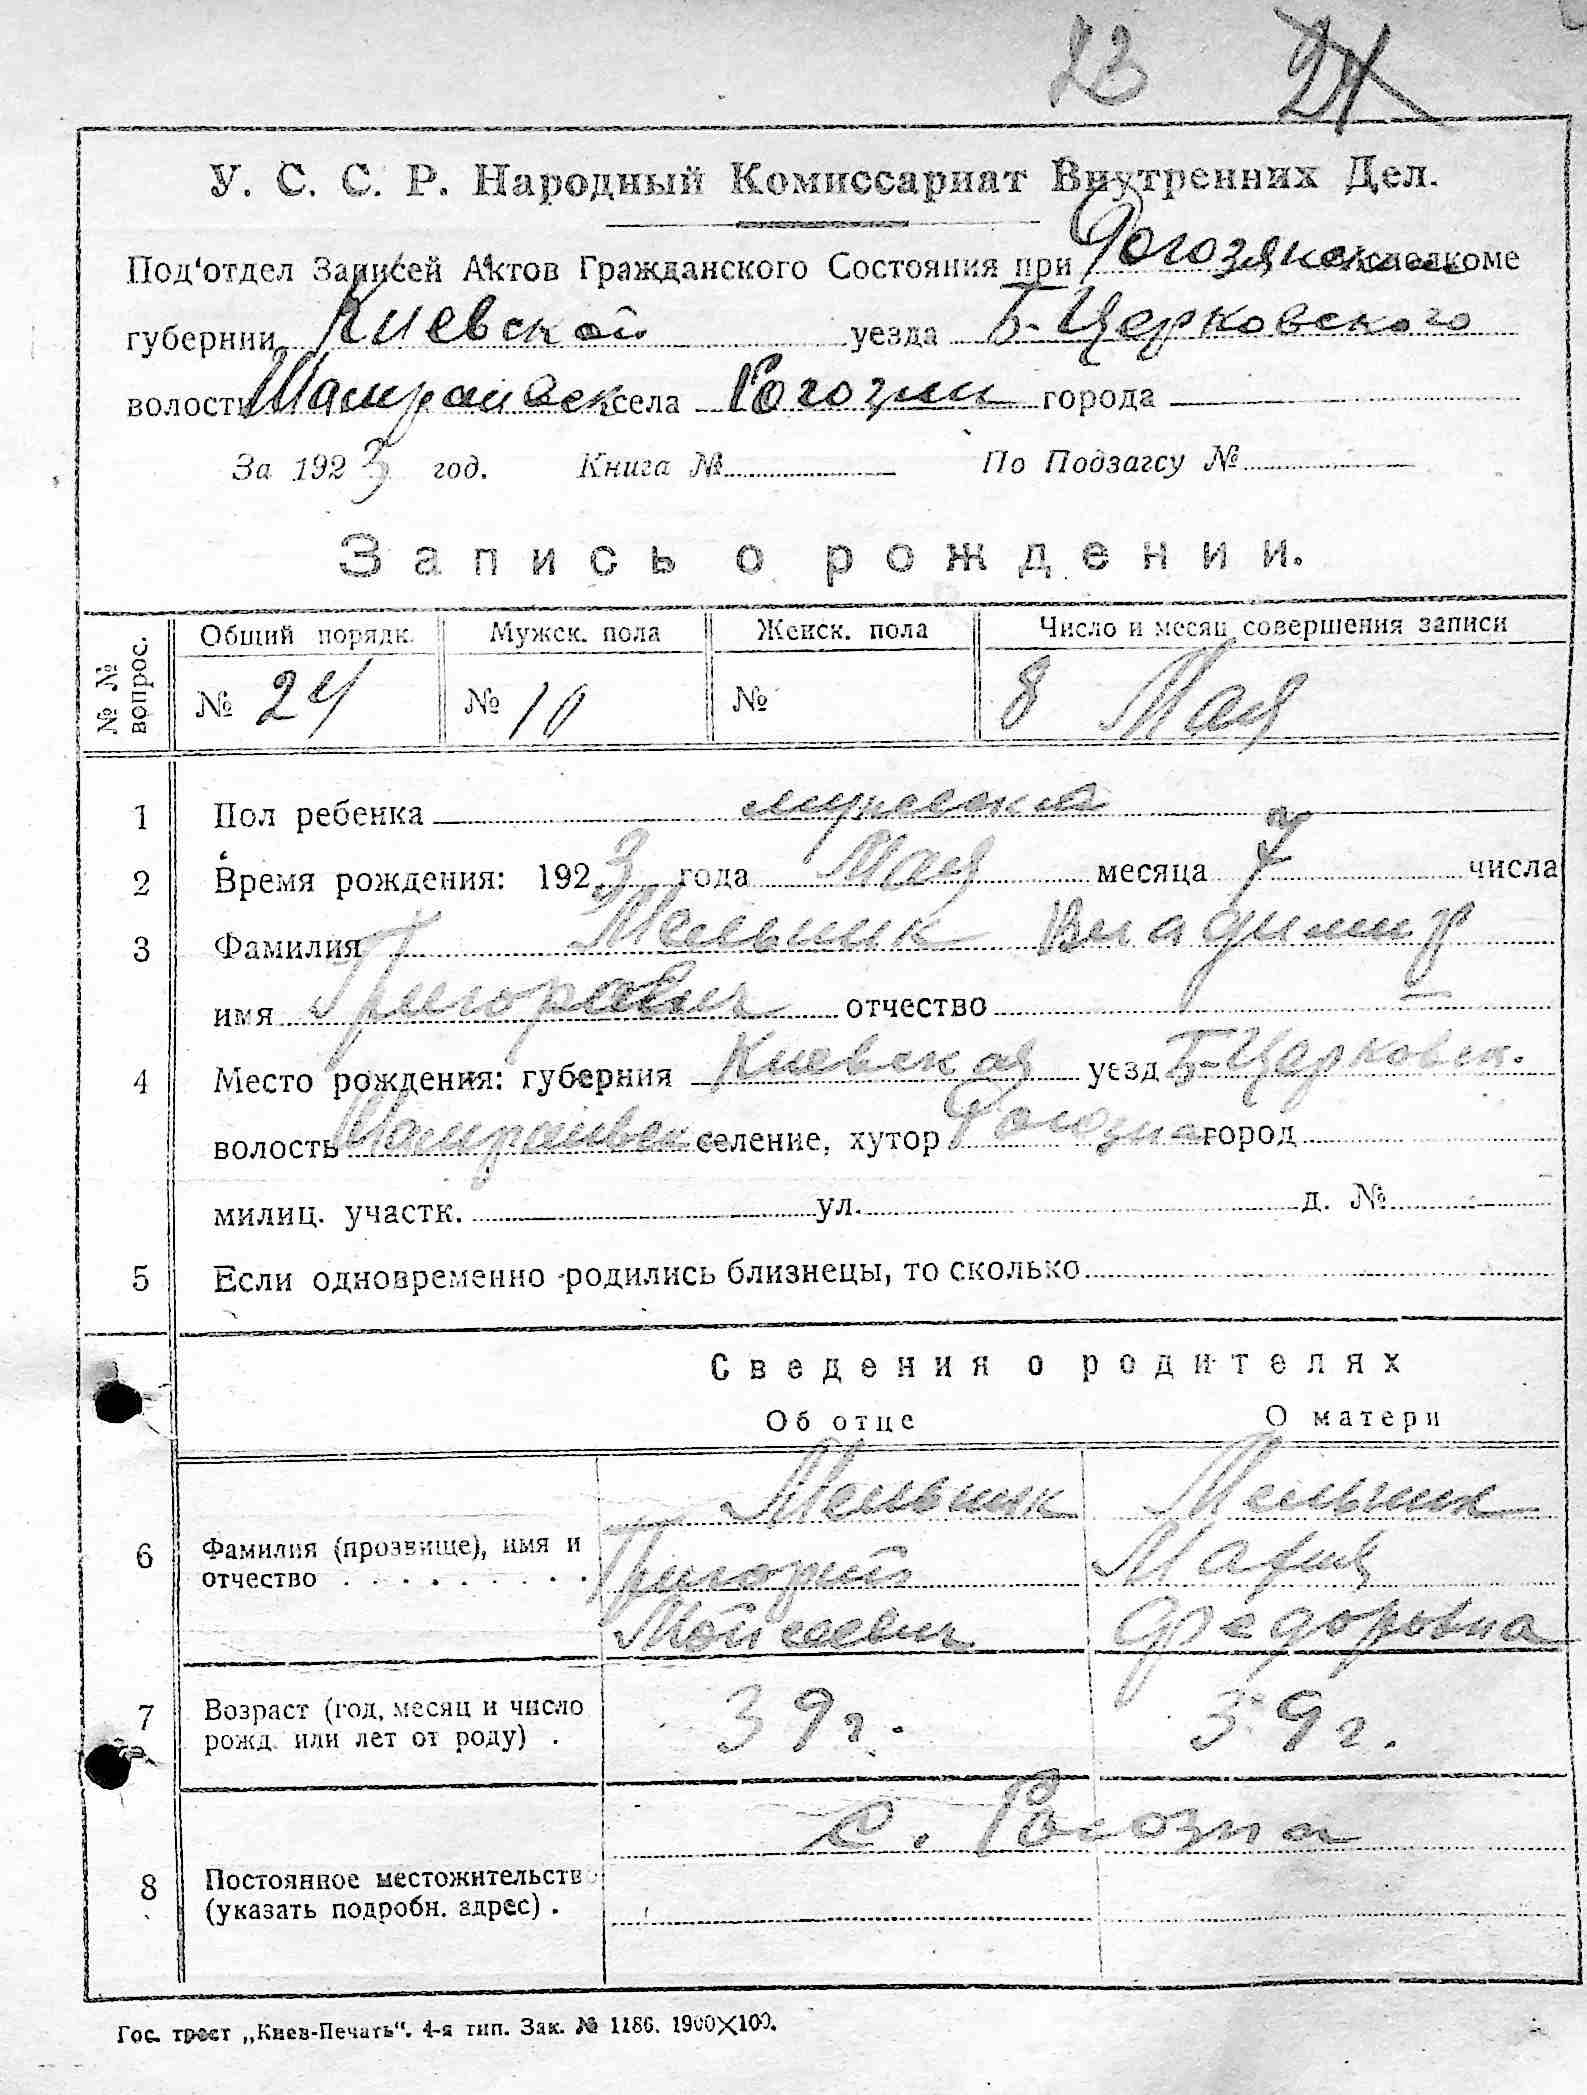 23 24
У. С. С. Р. Народный Комиссариат Внутренних Дел.
Под'отдел Записей Актов Гражданского Состояния при Рогозянском исполкоме
губернии Киевской уезда Б-Церковского
волости Шамраивск села Рогозни города
За 1923 год. Книга № По Подзагсу №
Запись о рождении.
№ № вопрос. Общий порядк. Мужск. пола Женск. пола Число и месяц совершения записи
№ 24 № 10 № 8 Мая
1 Пол ребенка
2 Время рождения: 1923 года Мая месяца 7 числа
3 Фамилия Мельник Владимир
имя Григоревич отчество
4 Место рождения: губерния Киевская уезд Б-Церковск.
волость Шамраивск селение, хутор Рогозна город
милиц. участк. ул. д. №
5 Если одновременно родились близнецы, то сколько
Сведения о родителях
Об отце О матери
Мельник Мельник
6 Фамилия (прозвище), имя и отчество Григорий Мария
Мойсеевич Федоровна
7 Возраст (год, месяц и число рожд. или лет от роду) . 39 г. 39 г.
с. Рогозна
8 Постоянное местожительство (указать подробн. адрес) .
Гос. трест „Киев-Печать". 4-я тип. Зак. № 1186. 1900×100.